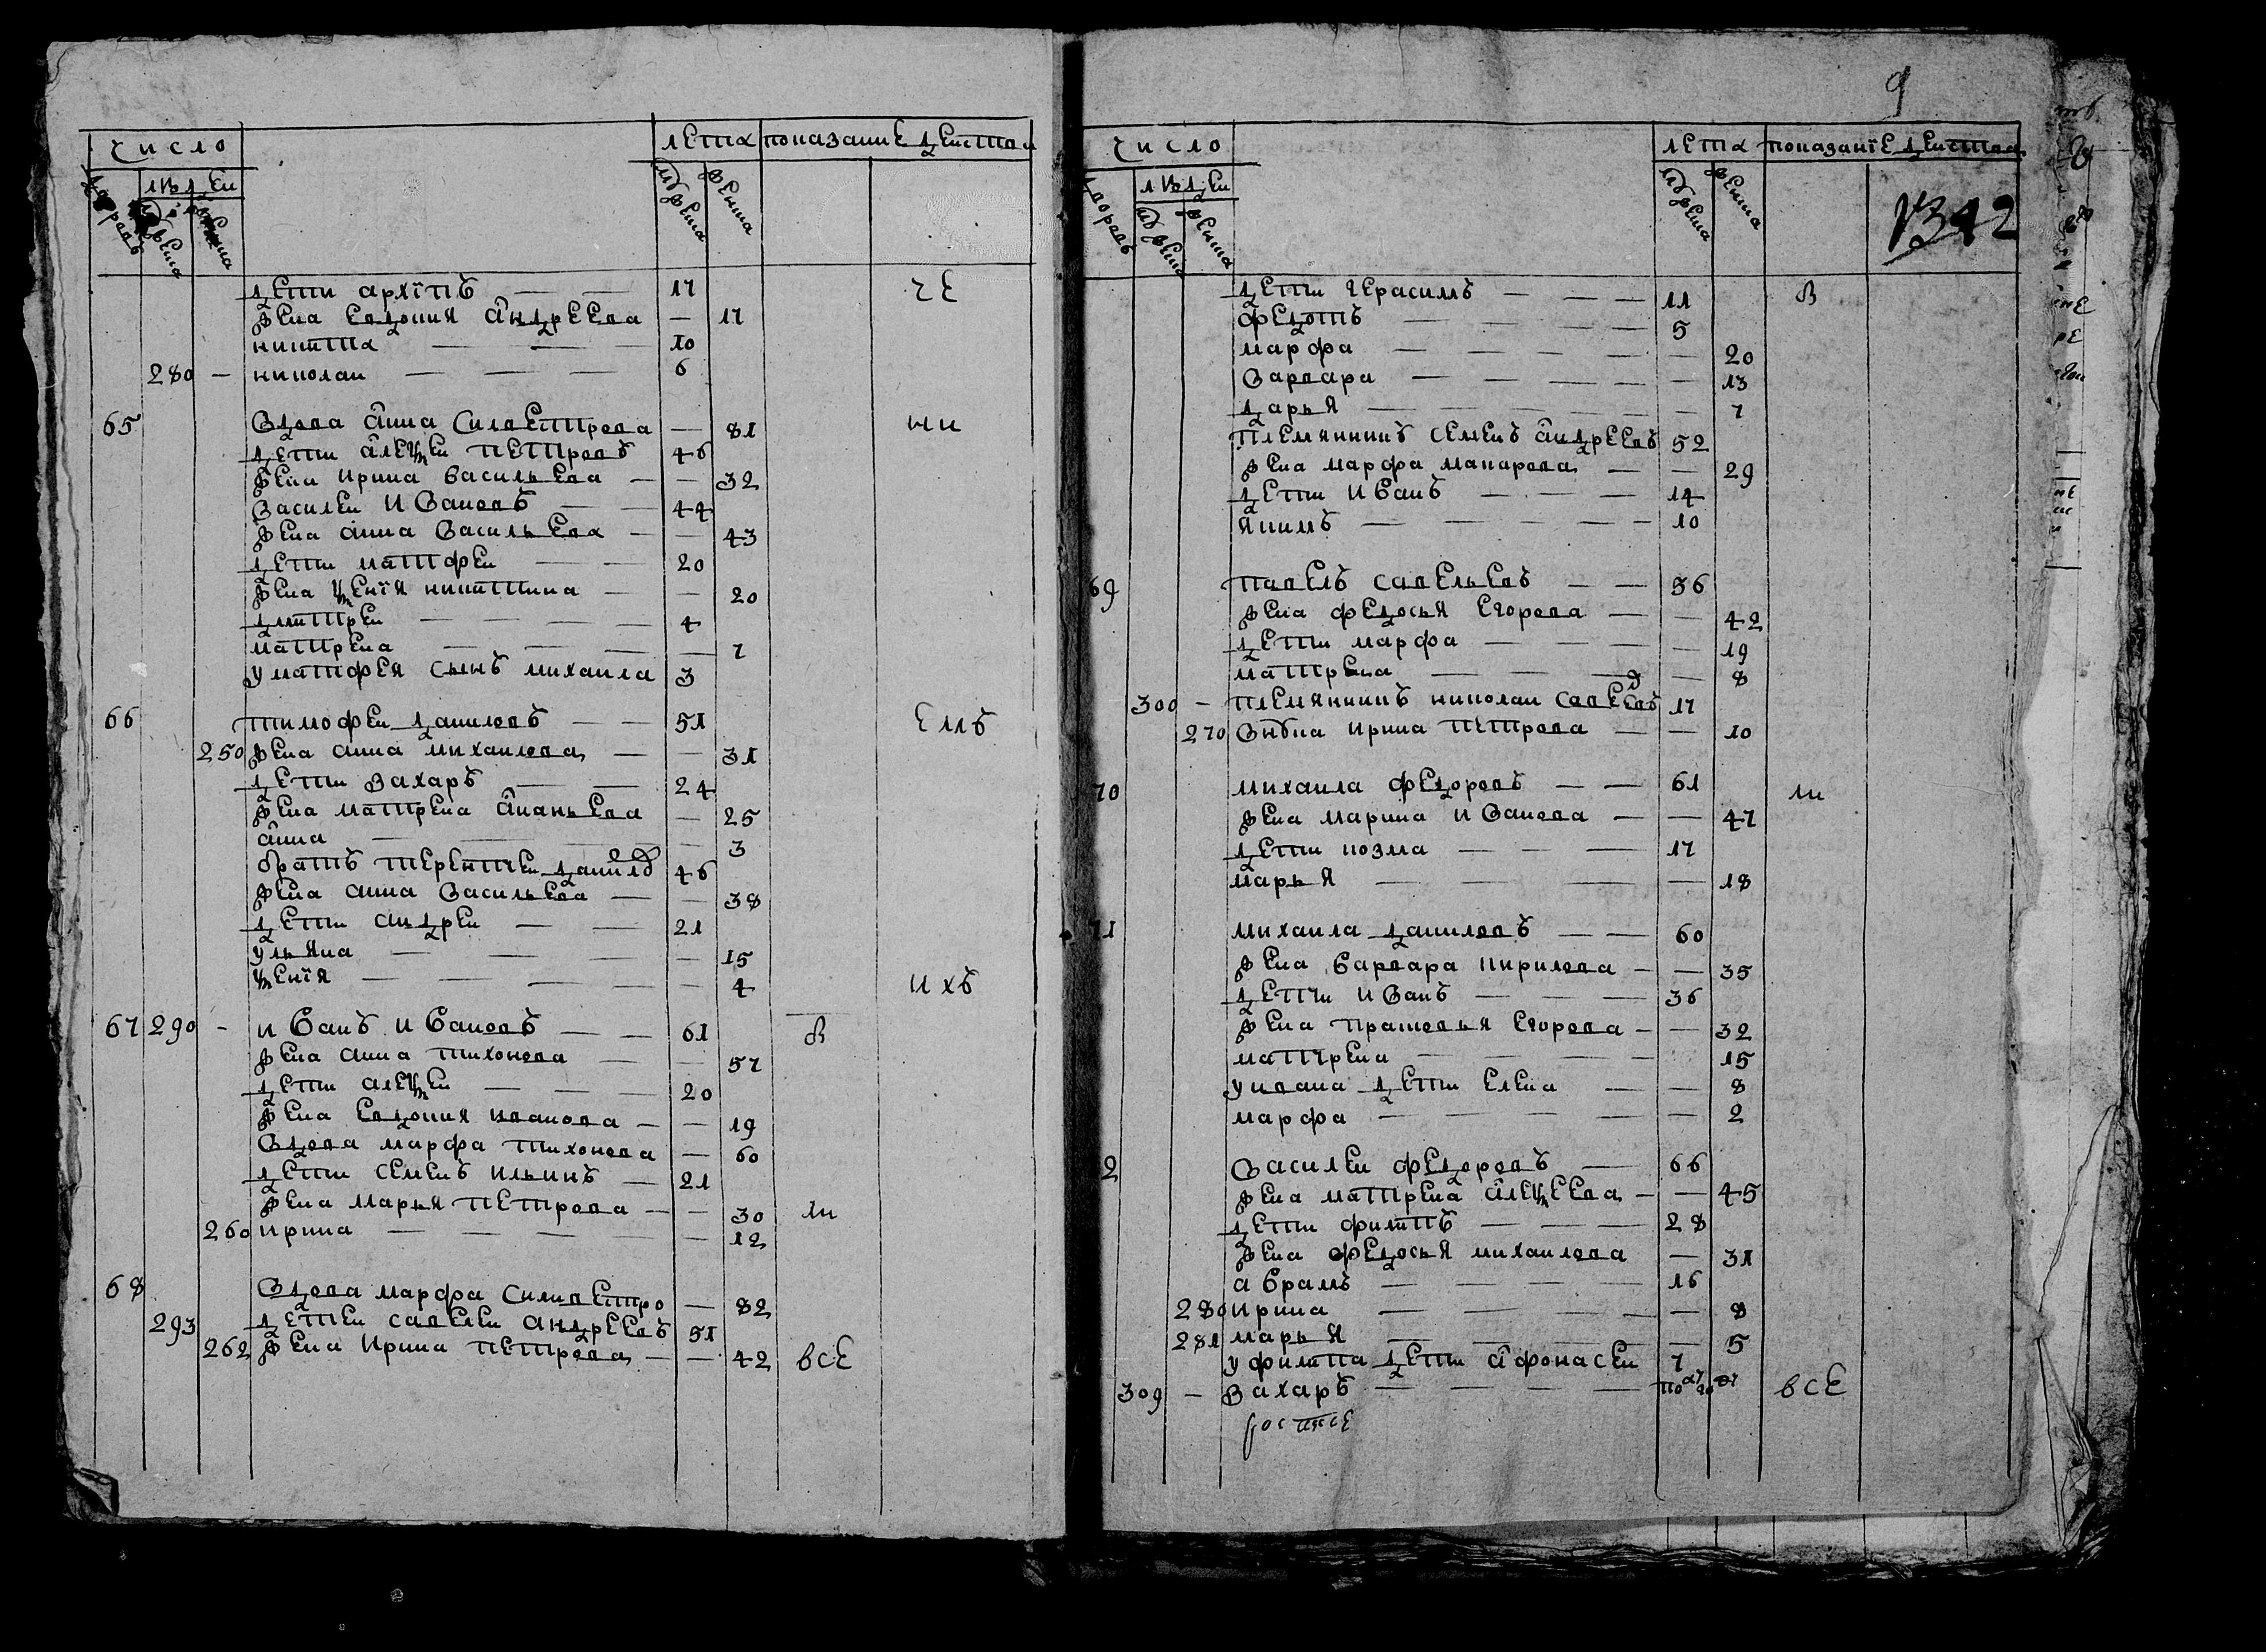 число лѣта показание действа
дворовъ людей мужеска женска мужеска женска
дети архїпъ — — 17 че
жена Евдокия андреева — 17
никита — — — 10
280 — николаи — — — 6
65 Вдова анна Силвестрова — 81 ни
дети алеѯеи петровъ 46
жена ирина васильева — — 32
Василеи Ивановъ — — 44
жена анна Васильева — — 43
дети матфеи — — 20
жена ѯенїя никитина — — 20
дмитреи — — — — 4
матрена — — — — 7
у матфея сынъ михаила 3
66 тимофеи даниловъ — — 51 емъ
250 жена анна михаилова — — 31
дети Захаръ — — 24
жена матрена ананьева — 25
анна — — — — 3
братъ терентеи данилов 46
жена анна Васильева — — 38
дети андреи — — 21
ульяна — — — — 15
ѯенїя — — — — — 4 ихъ
67 290 — иванъ ивановъ — — 61 в
жена анна тихонова — — 57
дети алеѯеи — — 20
жена Евдокия иванова — — 19
Вдова марфа тихонова — 60
дети семенъ ильинъ — 21
жена марья петрова — — 30 ли
260 ирина — — — — — 12
68 Вдова марфа силивестро — 82
293 детеи савелеи андреевъ 51
262 жена ирина петрова — — 42 все
9
число лѣта показанїе действа
дворовъ людей мужеска женска мужеска женска
1342
дети герасимъ — — — 11 в
федотъ — — — — 5
марфа — — — — — 20
Варвара — — — — — 13
дарья — — — — — 7
племянникъ семенъ андреевъ 52
жена марфа макарова — — 29
дети иванъ — — — 14
якимъ — — — — — 10
69 павелъ савельевъ — — 56
жена федосья егорова — — 42
дети марфа — — — — 19
матрена — — — — 8
300 — племянникъ николаи савеевъ 17
270 Внѣка ирина петрова — — 10
70 михаила федоровъ — — 61 ли
жена марина ивановa — — 47
дети козма — — — 17
марья — — — — 18
71 михаила даниловъ — — 60
жена варвара кирилова — — 35
дети иванъ — — — 36
жена прасковья егорова — — 32
матрена — — — — 15
у ивана дети елена — — 8
марфа — — — — — 2
2 Василеи федоровъ — 66
жена матрена алеѯеева — — 45
дети филипъ — — — 28
жена федосья михаилова — 31
аврамъ — — — — 16
280 ирина — — — — — 8
281 марья — — — — — 5
у филипа дети афонасеи 7
309 — Захаръ — — — — полгода все